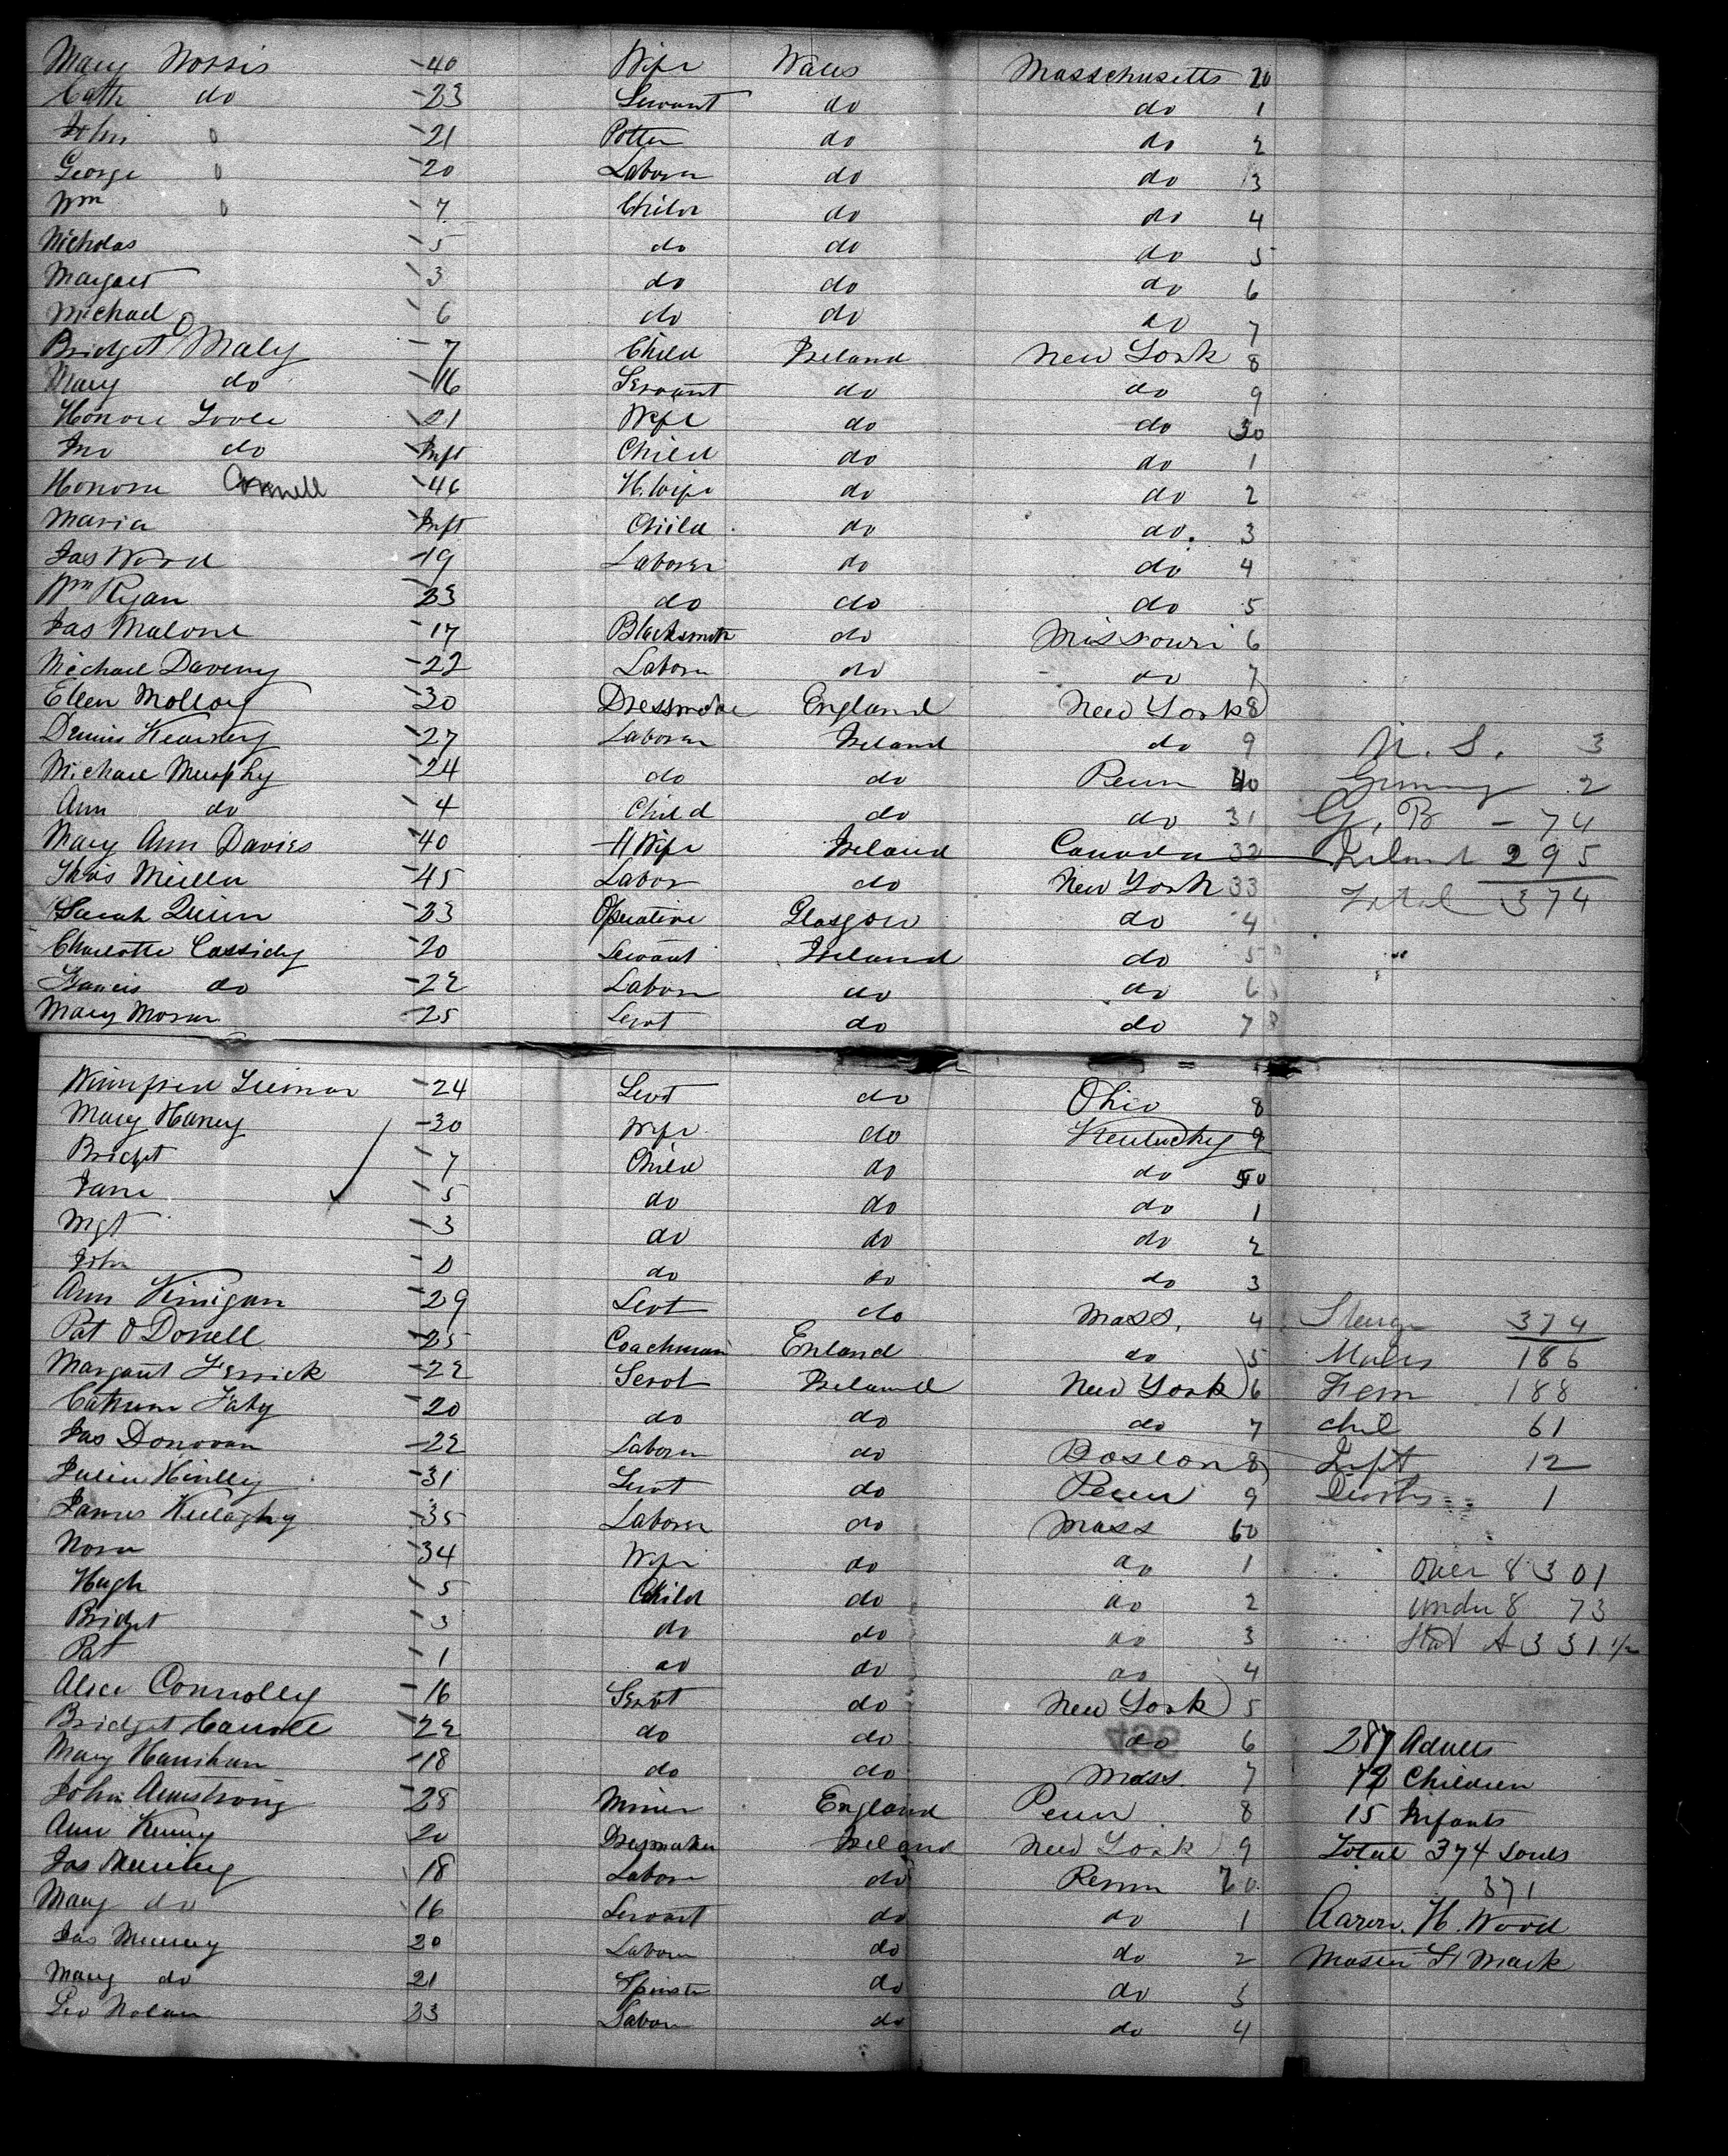 Mary Norris -40 Wife Wales Masschusetts 20
Cath do -23 Servant do do 1
John 0 -21 Potter do do 2
George 0 -20 Laborer do do 3
Wm 0 -7 Child do do 4
Nicholas -5 do do do 5
Margaret -3 do do do 6
Michael -6 do do do 7
Bridget O Maly -7 Child Ireland New York 8
Mary do -16 Servant do do 9
Honore Toole 21 Wife do do 30
Jno do Inft Child do do 1
Honora Connell -46 H. Wife do do 2
Maria Inft Child do do. 3
Jas Word -19 Laborer do do 4
Wm Ryan -23 do do do 5
Jas Malone -17 Blacksmith do Missouri 6
Michael Daveny -22 Labor do do 7
Ellen Molloy -30 Dressmake England New York 8
Dennis Kearney -27 Laborer Ireland do 9 U. S. 3
Michael Murphy -24 do do Penn 40 Germany 2
Ann do -4 Child do do 31 G. B - 74
Mary Ann Davies -40 H Wife Ireland Canada 32 Ireland 295
Thos Miller -45 Labor do New York 33 Total 374
Sarah Quinn -23 Operative Glasgow do 4
Charlotte Cassidy -20 Servant Ireland do 5
Francis do -22 Labor do do 6
Mary Moran -25 Servt do do 7
Winnifred -24 Servt do Ohio 8
Mary Haney -30 Wife do Kentucky 9
Bridget -7 Child do do 50
Jane -5 do do do 1
Mgt -3 do do do 2
John do do do 3
Ann Finigan -29 Servt do Mass. 4 Steerage 374
Pat O Donell -25 Coachman Enland do 5 Males 186
Margaret Ferrick -22 Servt Ireland New York 6 Fem 188
Fahy -20 do do do 7 chil 61
Jas Donovan -22 Laborer do Boston 8 Inft 12
Julia -31 Servt do Penn 9 Deaths 1
James -35 Laborer do Mass 60
Nora -34 Wife do do 1 Over 8 301
Hugh -5 Child do do 2 under 8 73
Bridget -3 do do do 3 Stat A 331 1/2
Pat -1 do do do 4
Alice Connolly -16 Servt do New York 5
Bridget Carroll -22 do do do 6 287 Adults
Mary Hanihan -18 do do Mass. 7 72 Children
John Armstrong -28 Miner England Penn 8 15 Infants
Ann Kenny 20 Dressmaker Ireland New York 9 Total 374 Souls
Jas 18 Labor do Penn 70 371
Mary do 16 Servant do do 1 Aaron. H. Wood
Jas 20 Labor do do 2 Master St Mark
Mary do 21 Spinster do do 3
Nolan 23 Labor do do 4